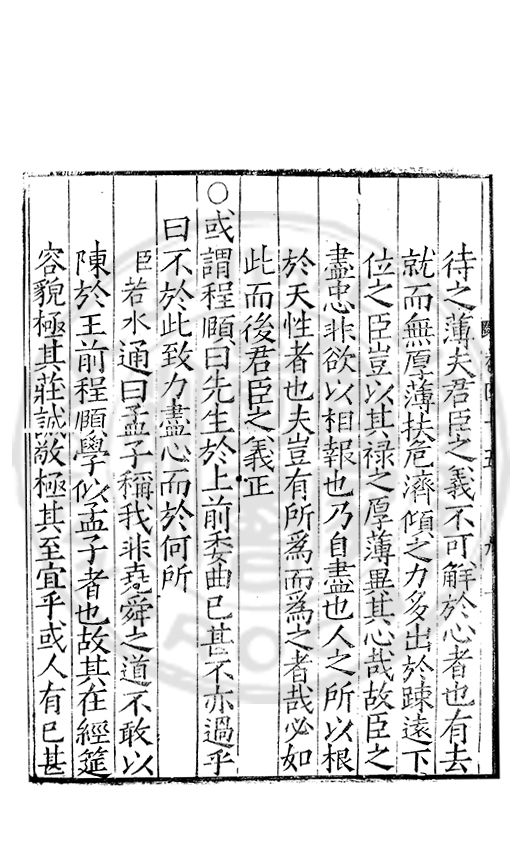 待之薄夫君臣之義不可解於心者也有去
就而無厚薄扶危濟傾之力多出於踈遠下
位之臣豈以其禄之厚薄異其心哉故臣之
盡忠非欲以相報也乃自盡也人之所以根
於天性者也夫豈有所爲而爲之者哉必如
此而後君臣之義正
○或謂程頤曰先生於上前委曲已甚不亦過乎
曰不於此致力盡心而於何所
臣若水通曰孟子稱我非堯舜之道不敢以
陳於王前程頤學似孟子者也故其在經筵
容貌極其莊誠敬極其至宜乎或人有已甚